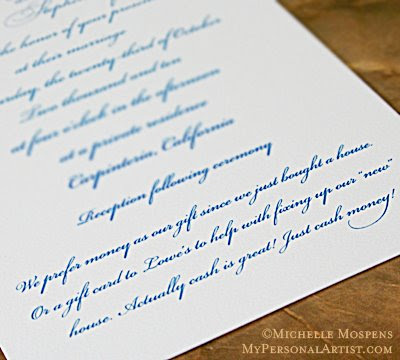 Stephen
the honor of your presence
at their marriage
Saturday, the twenty third of October
Two thousand and ten
at four o'clock in the afternoon
at a private residence
Carpinteria, California
Reception following ceremony
We prefer money as our gift since we just bought a house.
Or a gift card to Lowe's to help with fixing up our "new"
house. Actually cash is great! Just cash money!
©Michelle Mospens
MyPersonalArtist.com